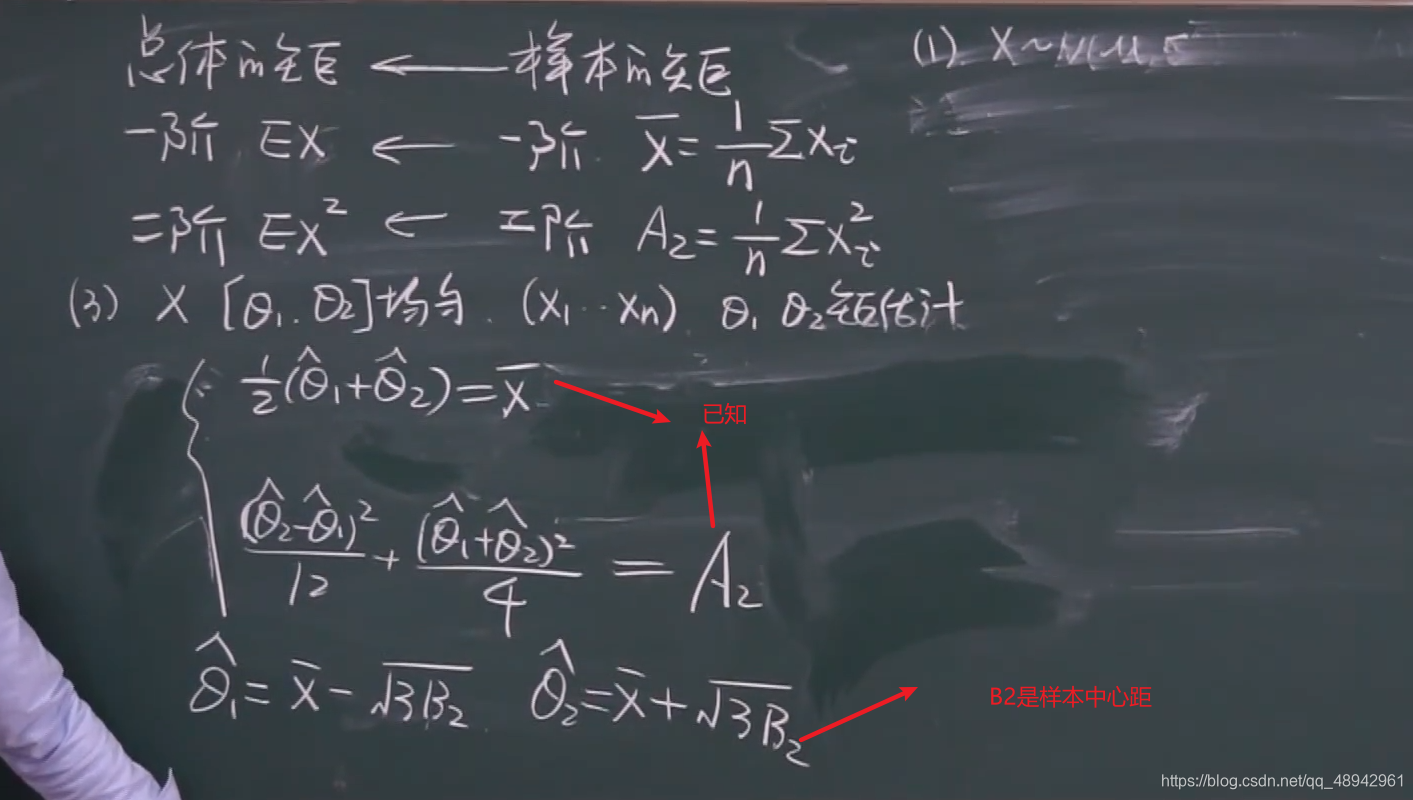 总体矩 ← 样本矩
(1) X~N(μ,σ
一阶 EX ← 一阶 X̄=1/n ΣXi
二阶 EX² ← 二阶 A₂=1/n ΣXi²
(3) X [θ₁.θ₂]均匀. (X₁…Xn) θ₁ θ₂矩估计
1/2(θ̂₁+θ̂₂)=X̄
已知
(θ̂₂-θ̂₁)²/12+(θ̂₁+θ̂₂)²/4=A₂
θ̂₁=X̄-√3B₂ θ̂₂=X̄+√3B₂
B2是样本中心距
https://blog.csdn.net/qq_48942961